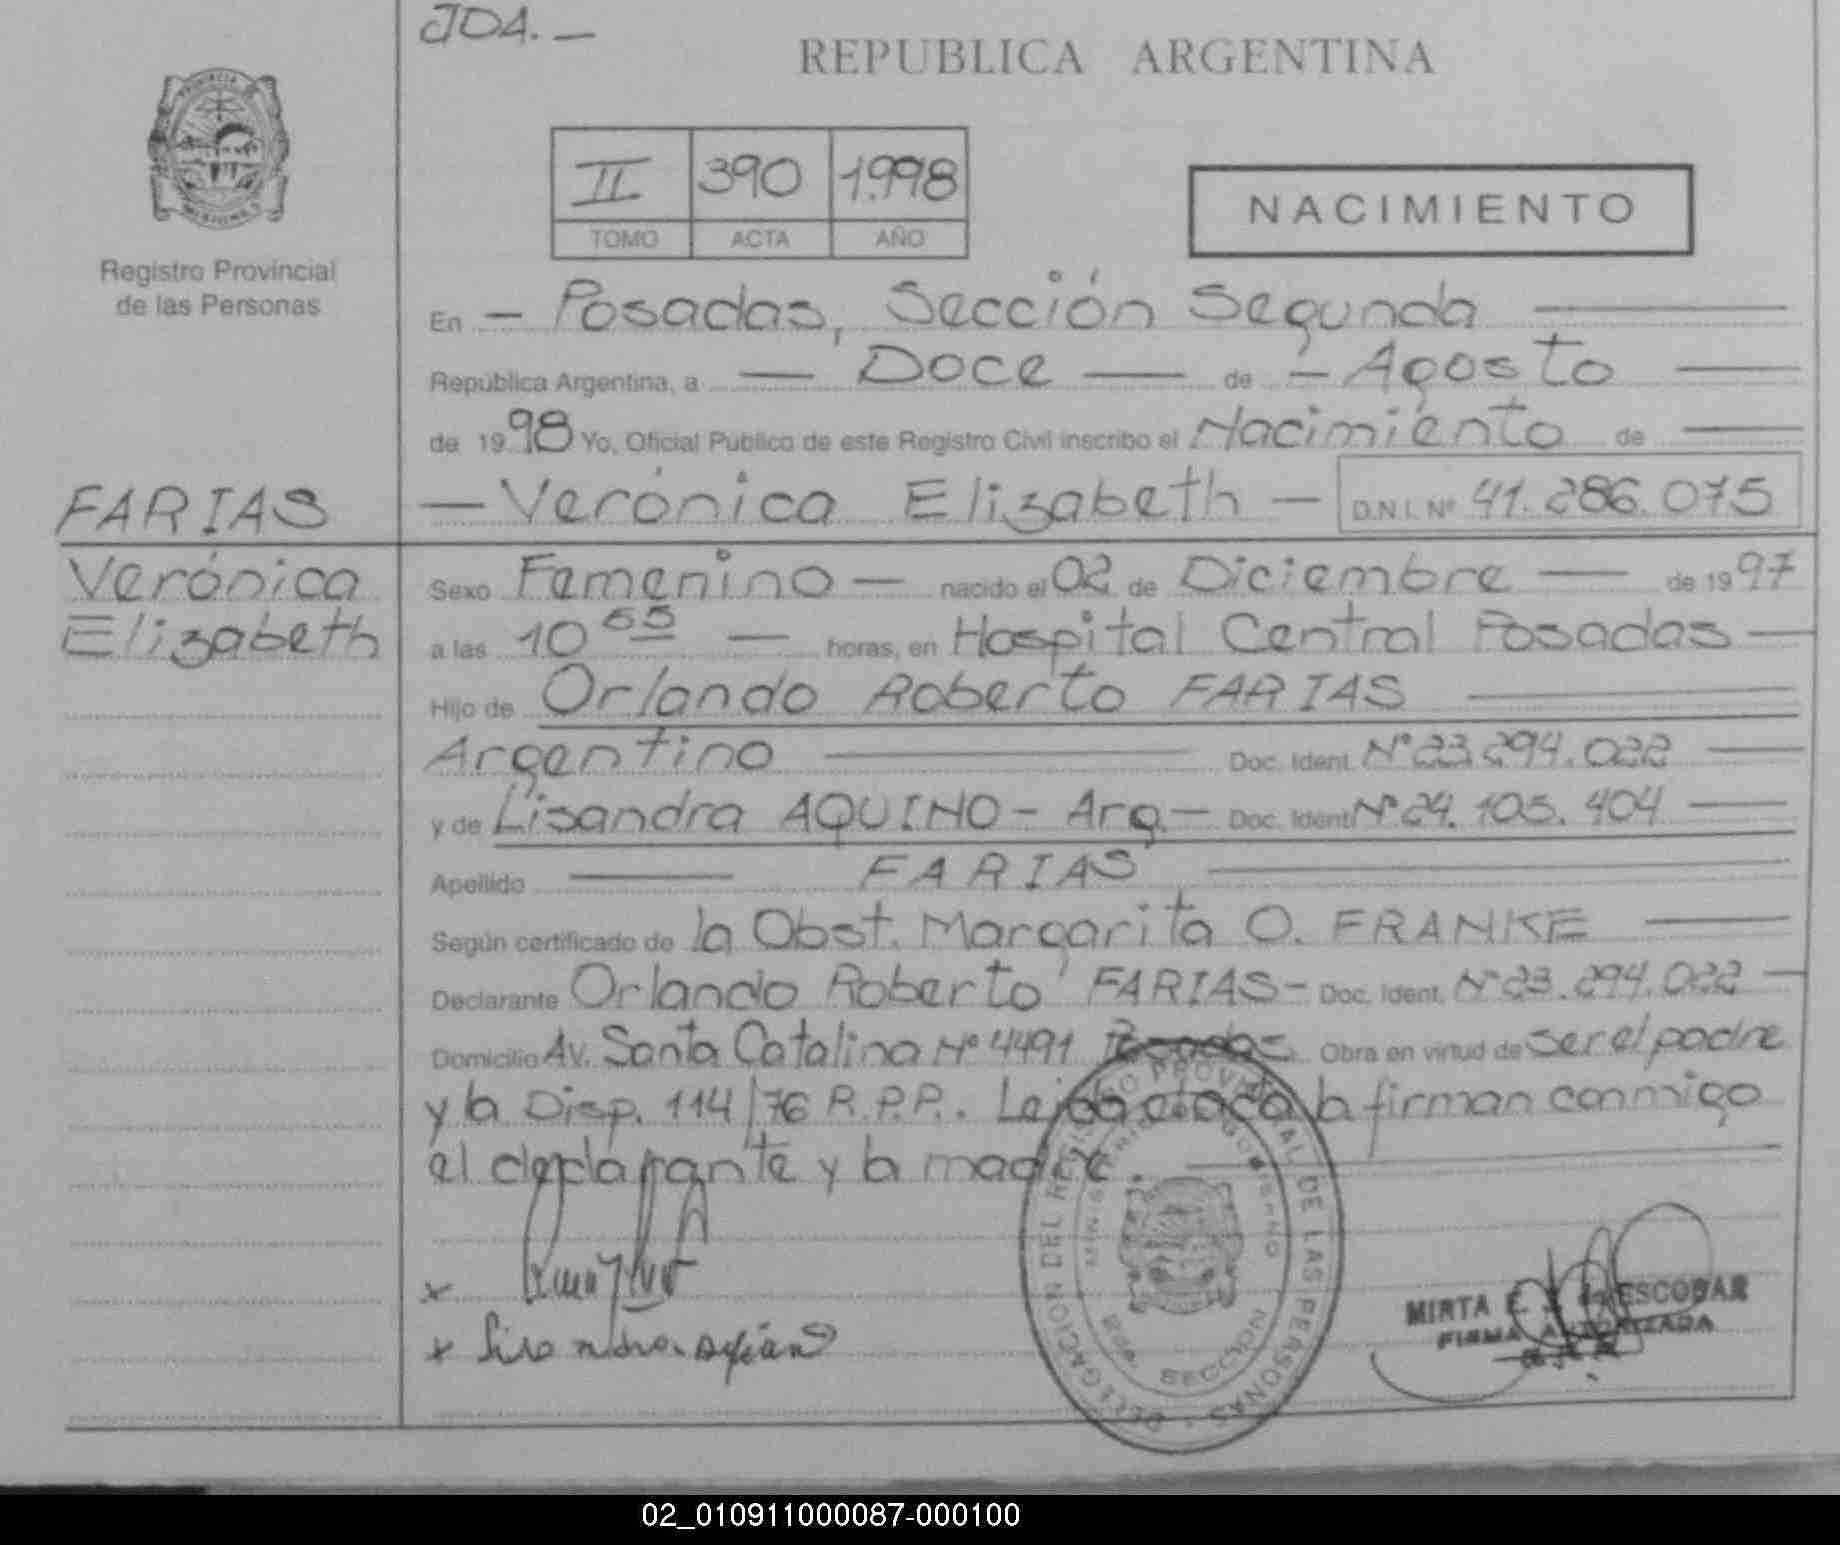 JOA.—
REPUBLICA ARGENTINA
PROVINCIA DE
MISIONES
II 390 1998
TOMO ACTA AÑO
NACIMIENTO
Registro Provincial
de las Personas
En — Posadas, Sección Segunda
República Argentina, a — Doce — de — Agosto
de 1998 Yo, Oficial Público de este Registro Civil inscribo el Nacimiento de
FARIAS
— Verónica Elizabeth — D.N.I. Nº 41.286.075
Verónica
Elizabeth
Sexo Femenino — nacido el 02 de Diciembre — de 1997
a las 10 — horas, en Hospital Central Posadas —
Hijo de Orlando Roberto FARIAS
Argentino Doc. Ident. Nº 23.294.022
y de Lisandra AQUINO - Arg.- Doc. Ident. Nº 24.105.404
Apellido FARIAS
Según certificado de la Obst. Margarita O. FRANKE
Declarante Orlando Roberto FARIAS - Doc. Ident. Nº 23.294.022
Domicilio Av. Santa Catalina Nº 4491 Posadas Obra en virtud de ser el padre
y la Disp. 114/76 R.P.P.. Leída el acta la firman conmigo
el declarante y la madre
DELEGACION DEL REGISTRO PROVINCIAL DE LAS PERSONAS
MINISTERIO DE GOBIERNO
SECCION
MIRTA ESCOBAR
FIRMA AUTORIZADA
02_010911000087-000100